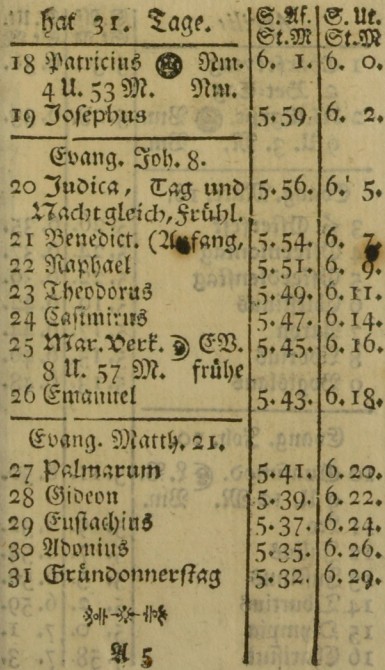 hat 31. Tage. S. Af. S. Ut.
St. M St. M
18 Patricius Nm. 6. 1. 6. 0.
4 U. 53 M. Nm.
19 Josephus 5.59 6. 2.
Evang. Joh. 8.
20 Judica, Tag und 5.56. 6. 5.
Nachtgleich, Frühl.
21 Benedict. (Anfang, 5.54. 6. 7.
22 Raphael 5.51. 6. 9.
23 Theodorus 5.49. 6.11.
24 Casimirus 5.47. 6.14.
25 Mar. Verk. EV. 5.45. 6.16.
8 U. 57 M. frühe
26 Emanuel 5.43. 6.18.
Evang. Matth. 21.
27 Palmarum 5.41. 6.20.
28 Gideon 5.39. 6.22.
29 Eustachius 5.37. 6.24.
30 Adonius 5.35. 6.26.
31 Gründonnerstag 5.32. 6.29.
A 5